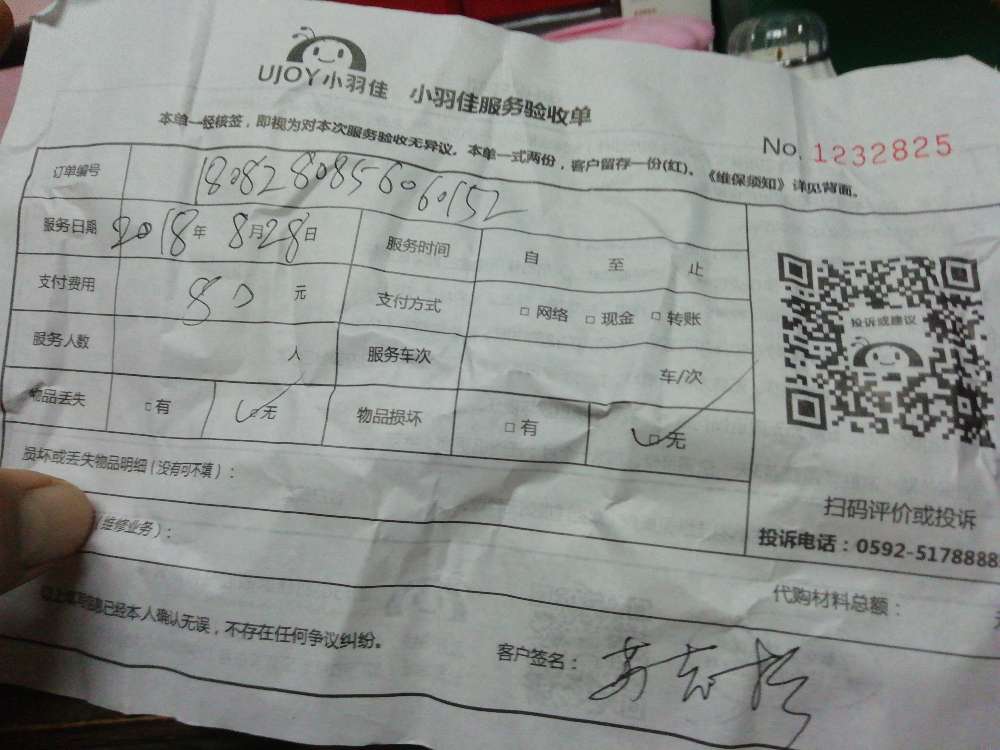 UJOY小羽佳 小羽佳服务验收单
本单一经核签，即视为对本次服务验收无异议。本单一式两份，客户留存一份(红)。《维保须知》详见背面。
No. 1232825
订单编号 180828085606 0152
服务日期 2018年 8月28日 服务时间 自 至 止
支付费用 80 元 支付方式 □ 网络 □ 现金 □ 转账
服务人数 人 服务车次 车/次
物品丢失 □有 □无 物品损坏 □ 有 □无
损坏或丢失物品明细（没有可不填）：
投诉或建议
扫码评价或投诉
投诉电话：0592-5178888
(维修业务)：
代购材料总额：
已经本人确认无误，不存在任何争议纠纷。
客户签名：